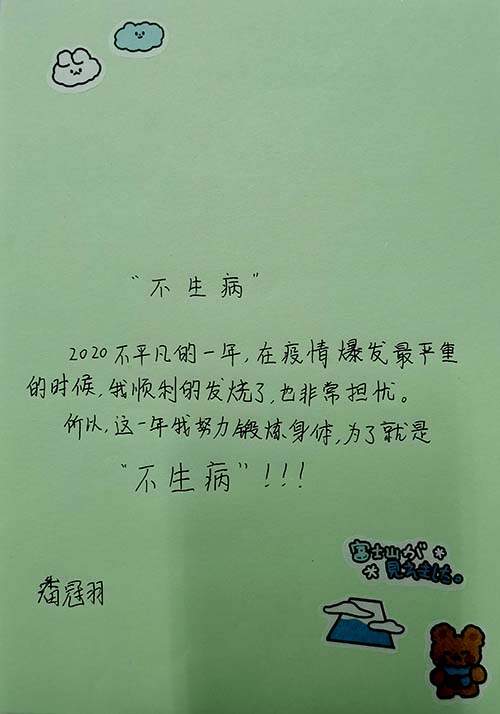 “不生病”
2020不平凡的一年,在疫情爆发最严重
的时候,我顺利的发烧了,也非常担忧。
所以,这一年我努力锻炼身体,为了就是
“不生病”!!!
富士山が
見えました。
潘冠羽